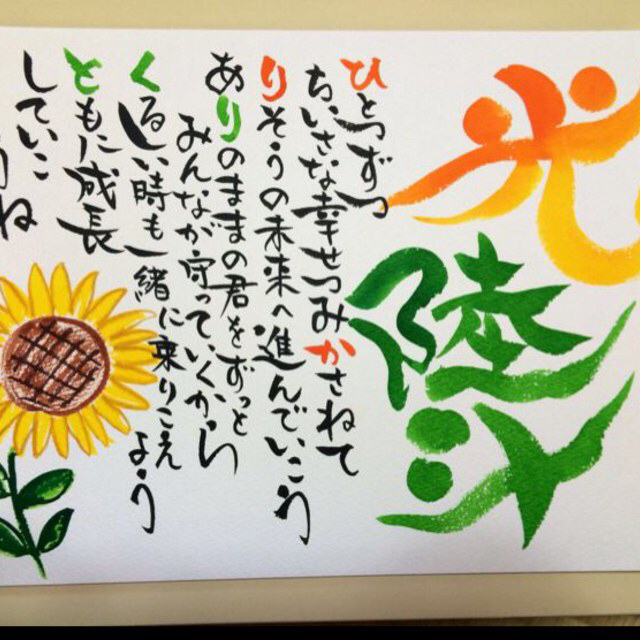 光
陸斗
ひとつずつ
ちいさな幸せつみかさねて
りそうの未来へ進んでいこう
ありのままの君をずっと
みんなが守っていくから
くるしい時も一緒に乗りこえよう
ともに成長
していこ
うね